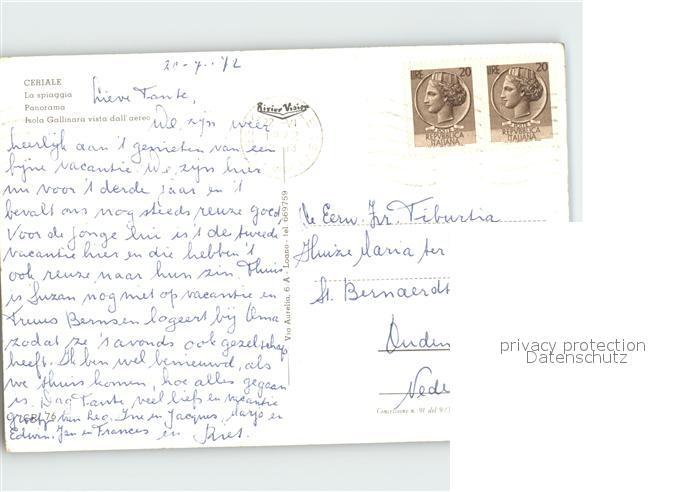 20-7-'72
CERIALE
La spiaggia
Panorama
Isola Gallinara vista dall'aereo
Lieve Tante,
We zijn weer
heerlijk aan 't genieten van een
fijne vacantie. We zijn hier
nu voor 't derde jaar en 't
bevalt ons nog steeds reuze goed.
Voor de jonge lui is 't de tweede
vacantie hier en die hebben 't
ook reuze naar hun zin. Thuis
is Suzan nog met op vacantie en
Truus Bernsen logeert bij Oma
zodat ze 's avonds ook gezelschap
heeft. Ik ben wel benieuwd, als
we thuis komen, hoe alles gegaan
is. Dag Tante, veel liefs en vacantie
van Ine en Jacques, en
Edwin, Jan en Frances en
Rivier Vision
Via Aurelia, 6 A - Loano - tel. 669759
LIRE 20
POSTE
REPVBBLICA
ITALIANA
LIRE 20
POSTE
REPVBBLICA
ITALIANA
De Eerw. Zr. Tiburtia
Huize Maria ter
St. Bernaerdt
Ouden
Nede
privacy protection
Datenschutz